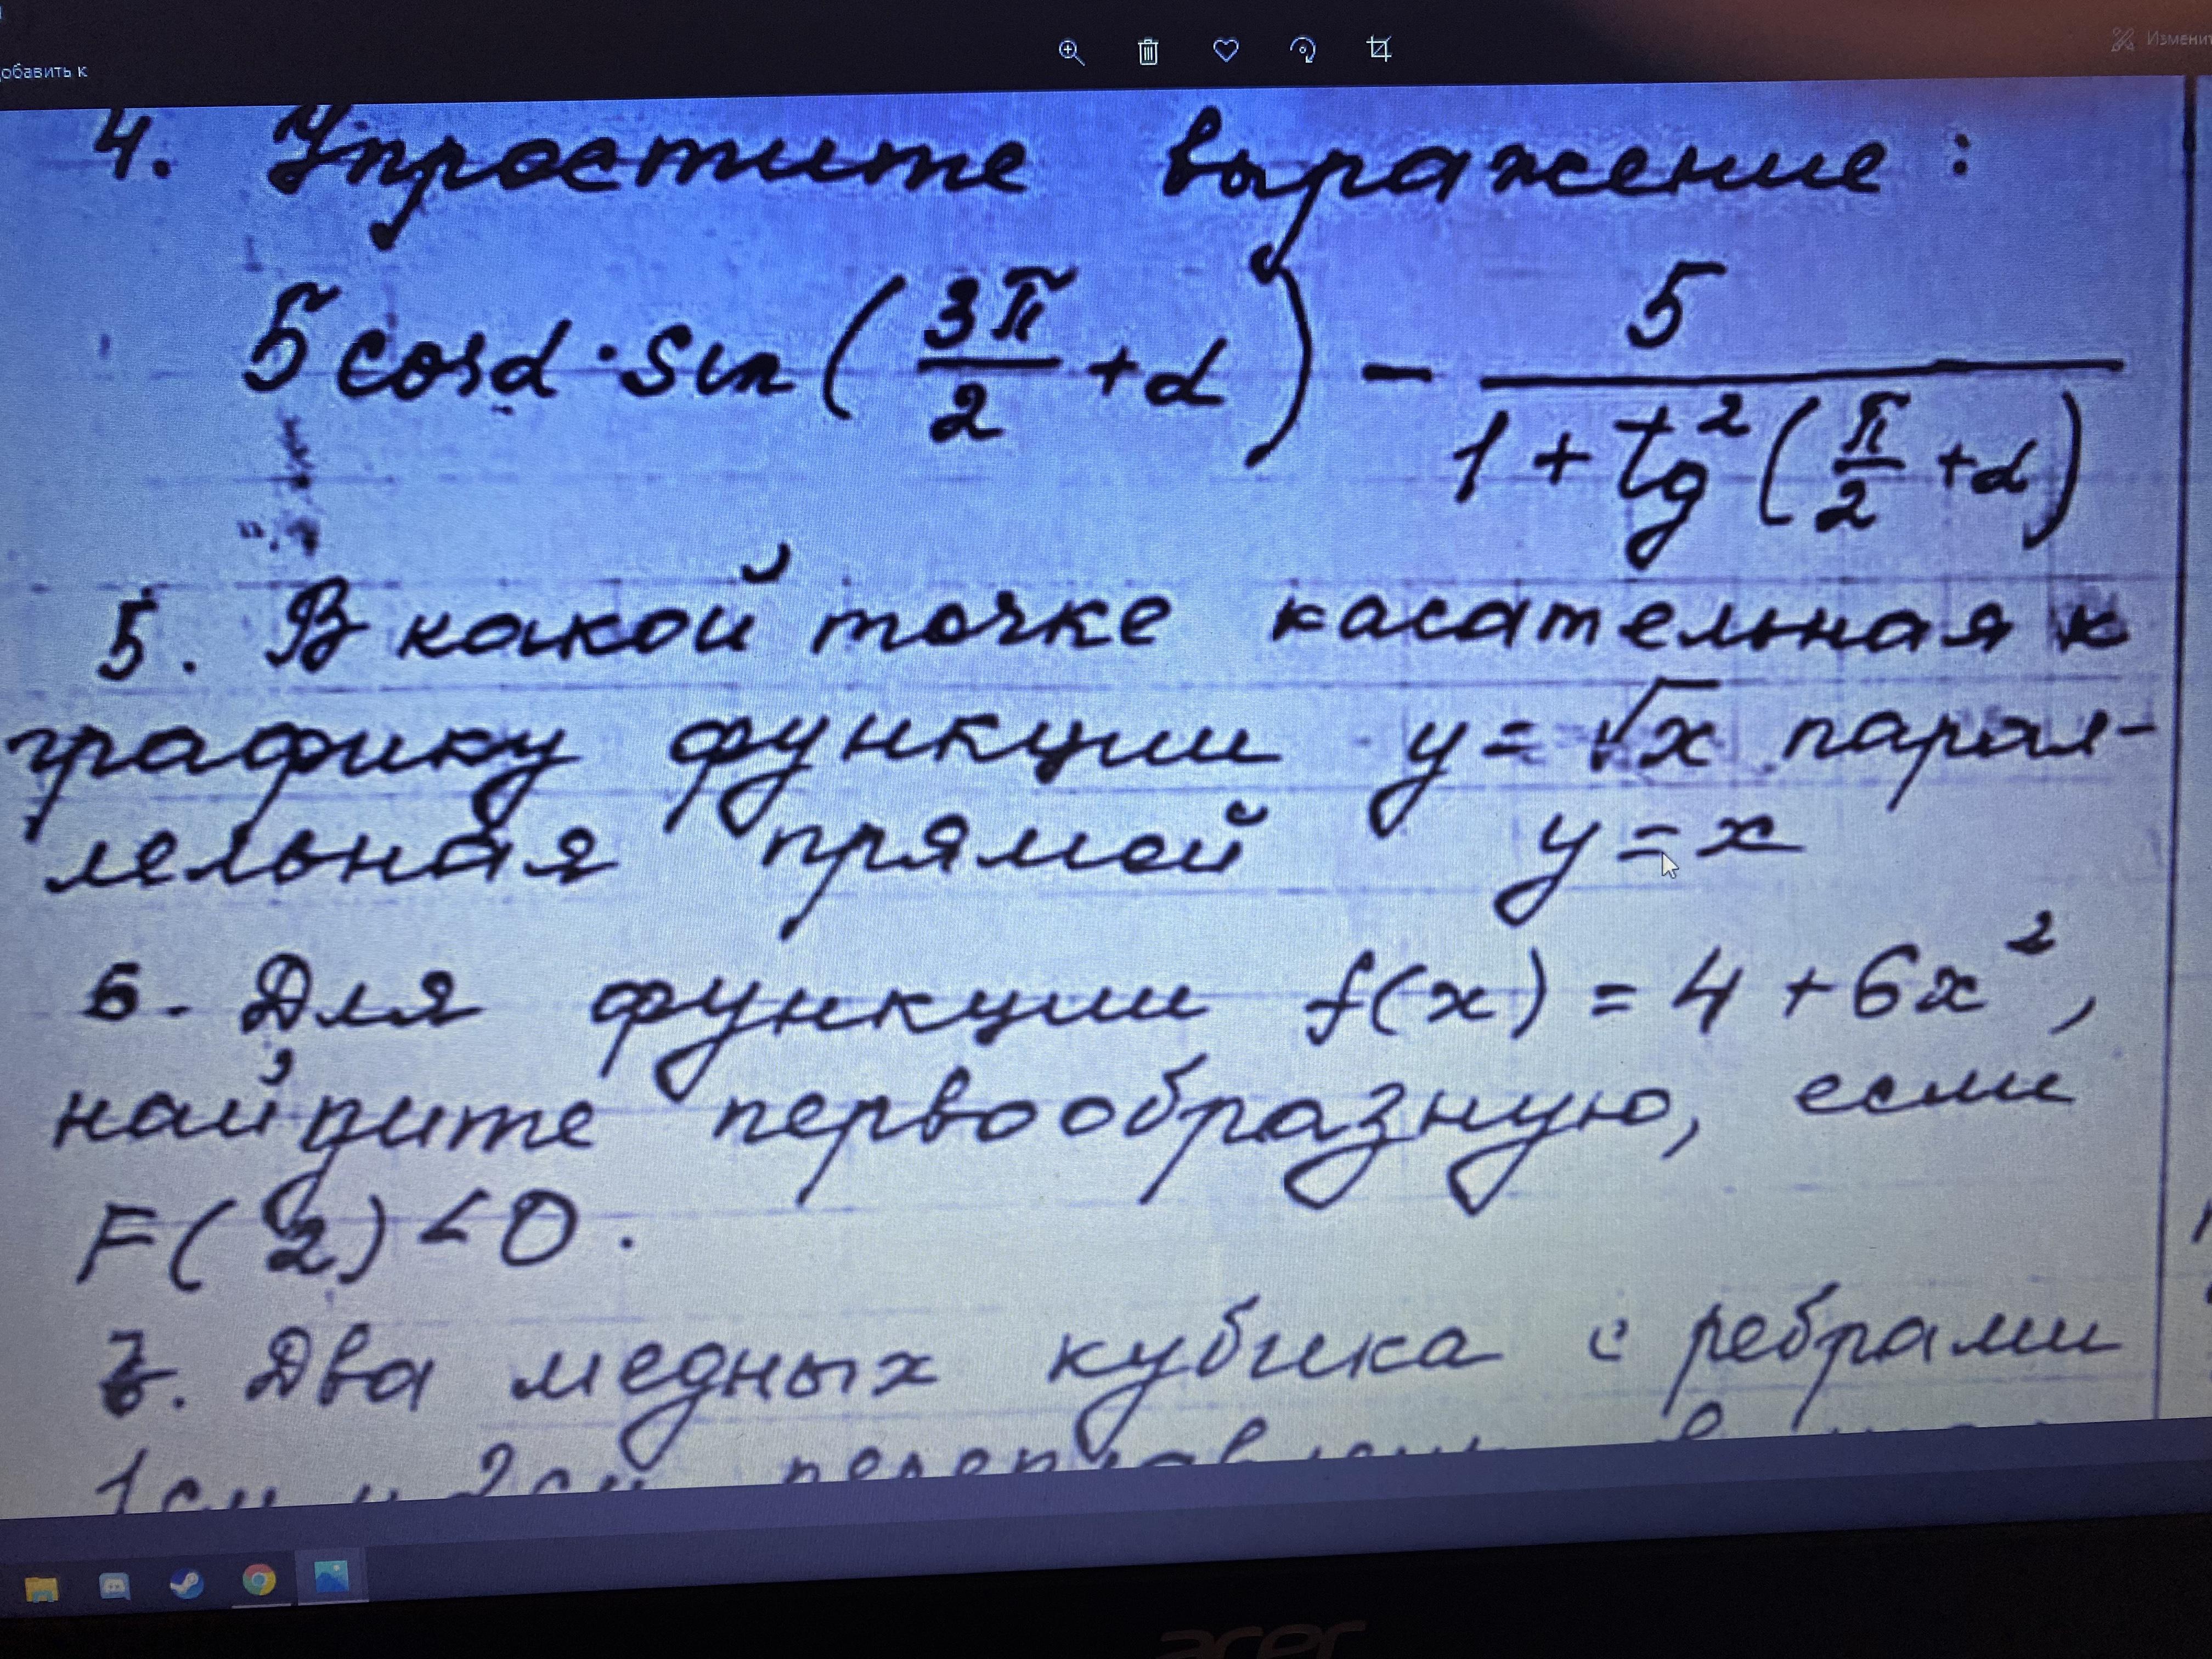 добавить к
Изменит
4. Упростите выражение:
5 cosα · sin(3π/2 + α) - 5/(1 + tg²(π/2 + α))
5. В какой точке касательная к
графику функции y = √x парал-
лельная прямой y = x
6. Для функции f(x) = 4 + 6x²,
найдите первообразную, если
F(2) < 0.
7. Два медных кубика с ребрами
1см и 2см переплавлены в
acer